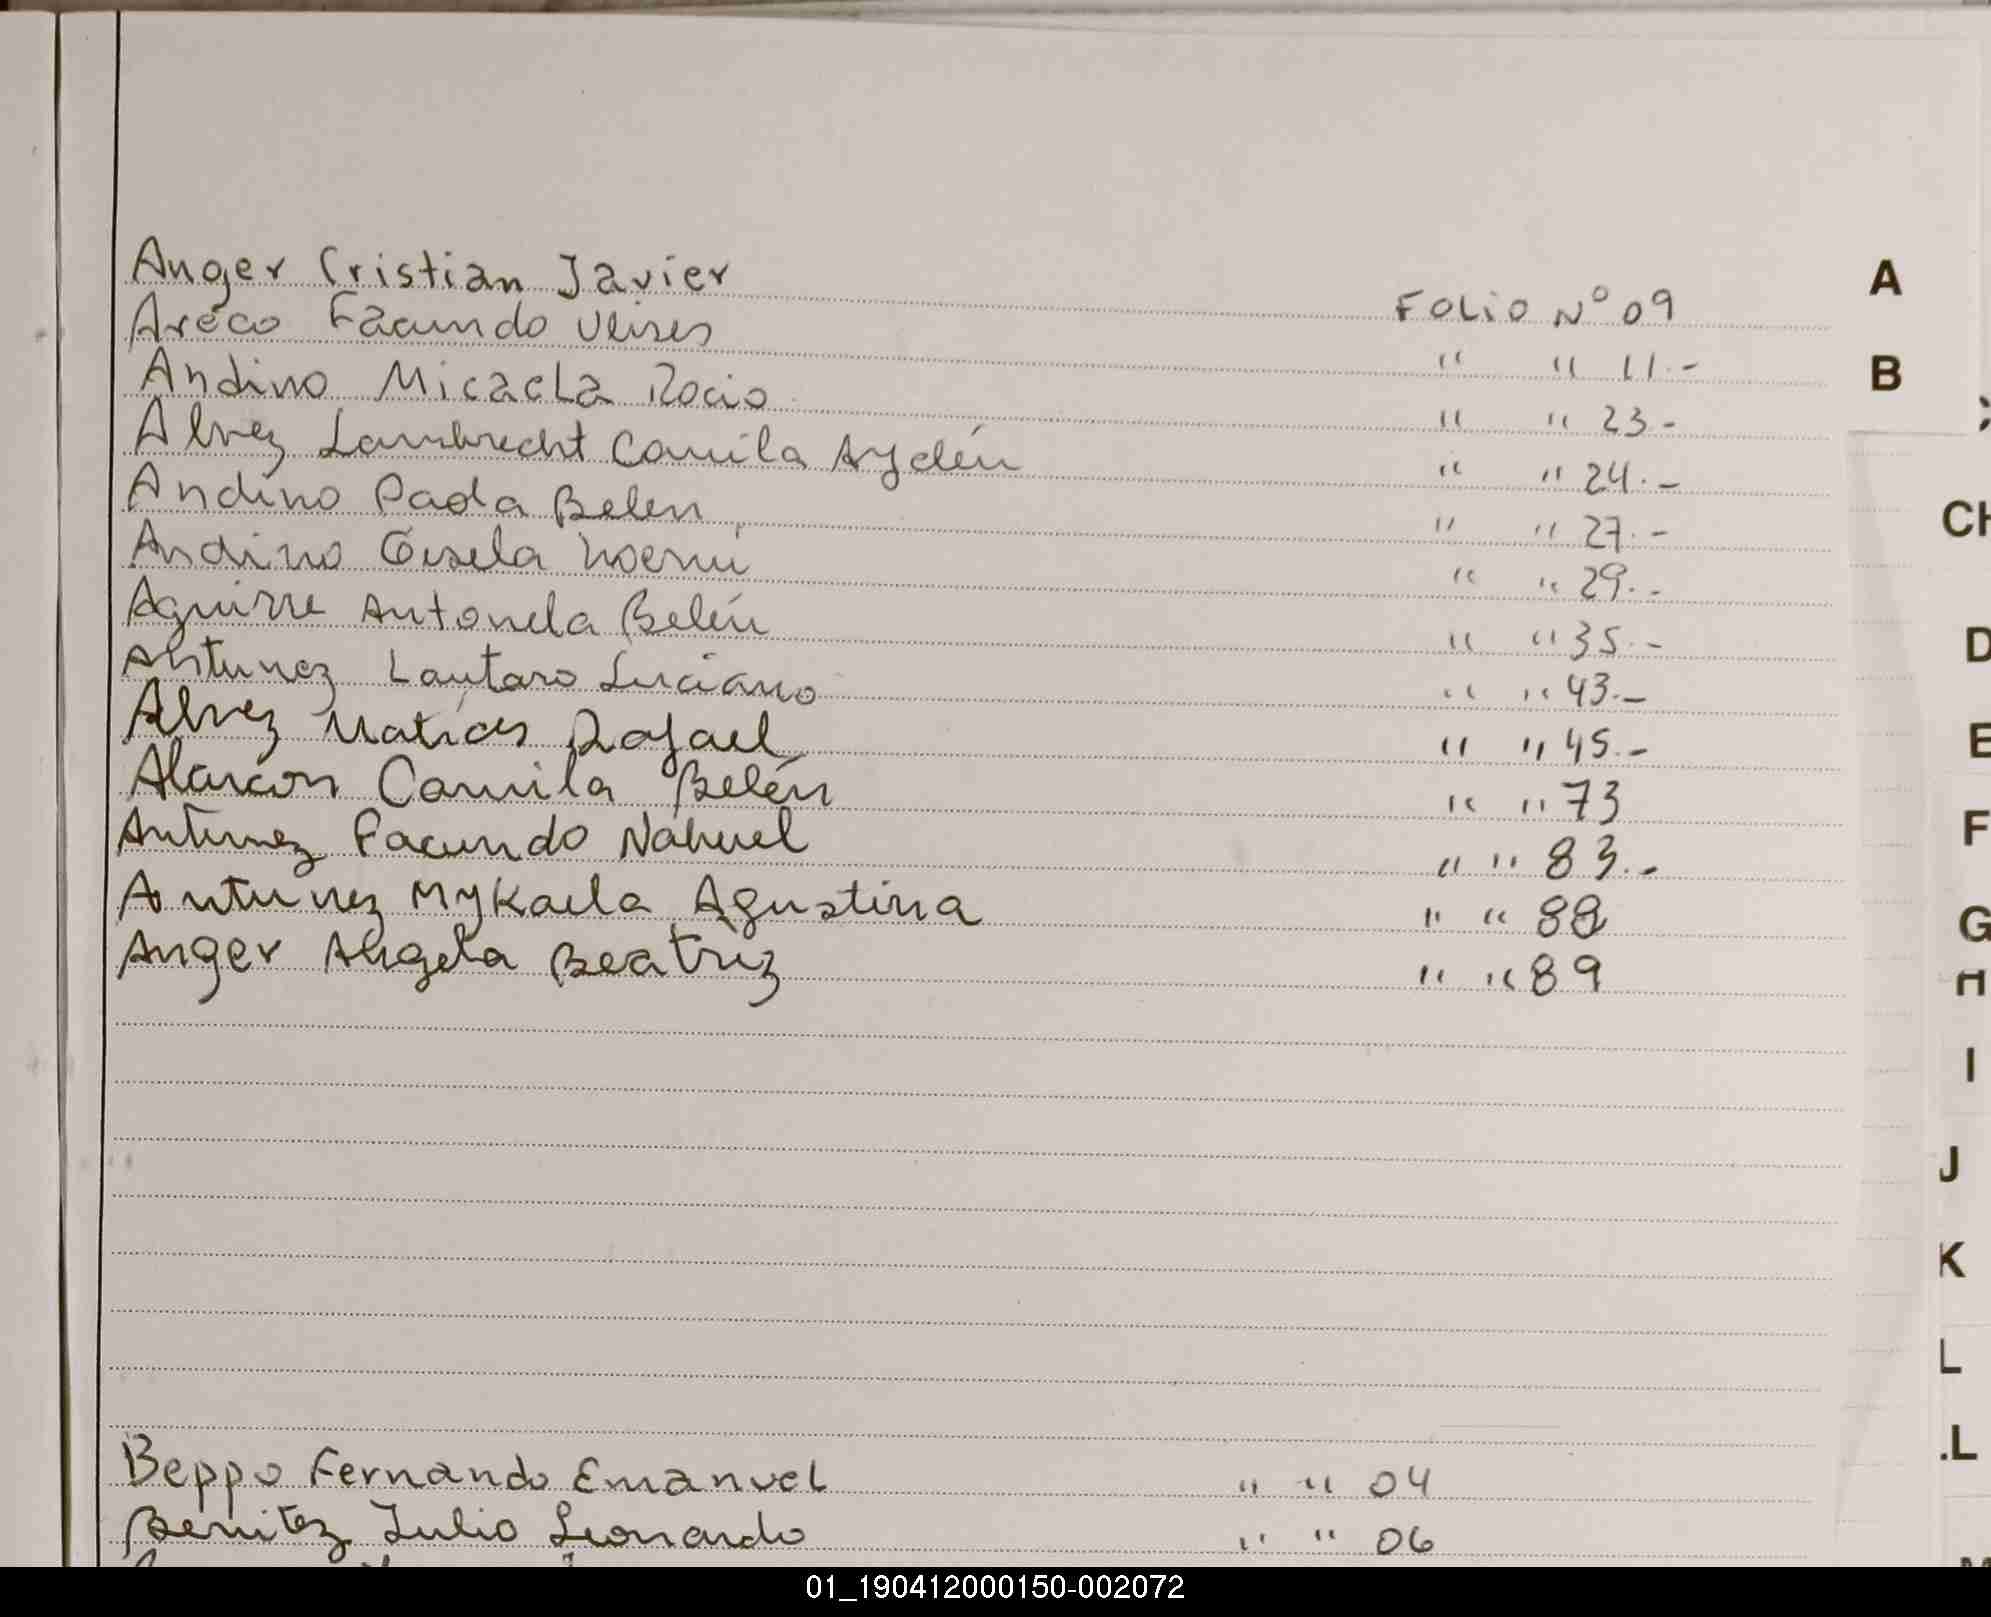 Anger Cristian Javier Folio Nº 09
Aréco Facundo Ulises " " 11.-
Andino Micaela Rocio " " 23.-
Alvez Lambrecht Camila Aydén " " 24.-
Andino Paola Belen " " 27.-
Andino Gisela Noemí " " 29.-
Aguirre Antonela Belén " " 35.-
Antunez Lautaro Luciano " " 43.-
Alvez Matías Rafael " " 45.-
Alarcón Camila Belén " " 73
Antunez Facundo Nahuel " " 83.-
Antunez Mykaela Agustina " " 88
Anger Angela Beatriz " " 89
Beppo Fernando Emanuel " " 04
Benitez Julio Leonardo " " 06
A
B
CH
D
E
F
G
H
I
J
K
L
LL
01_190412000150-002072